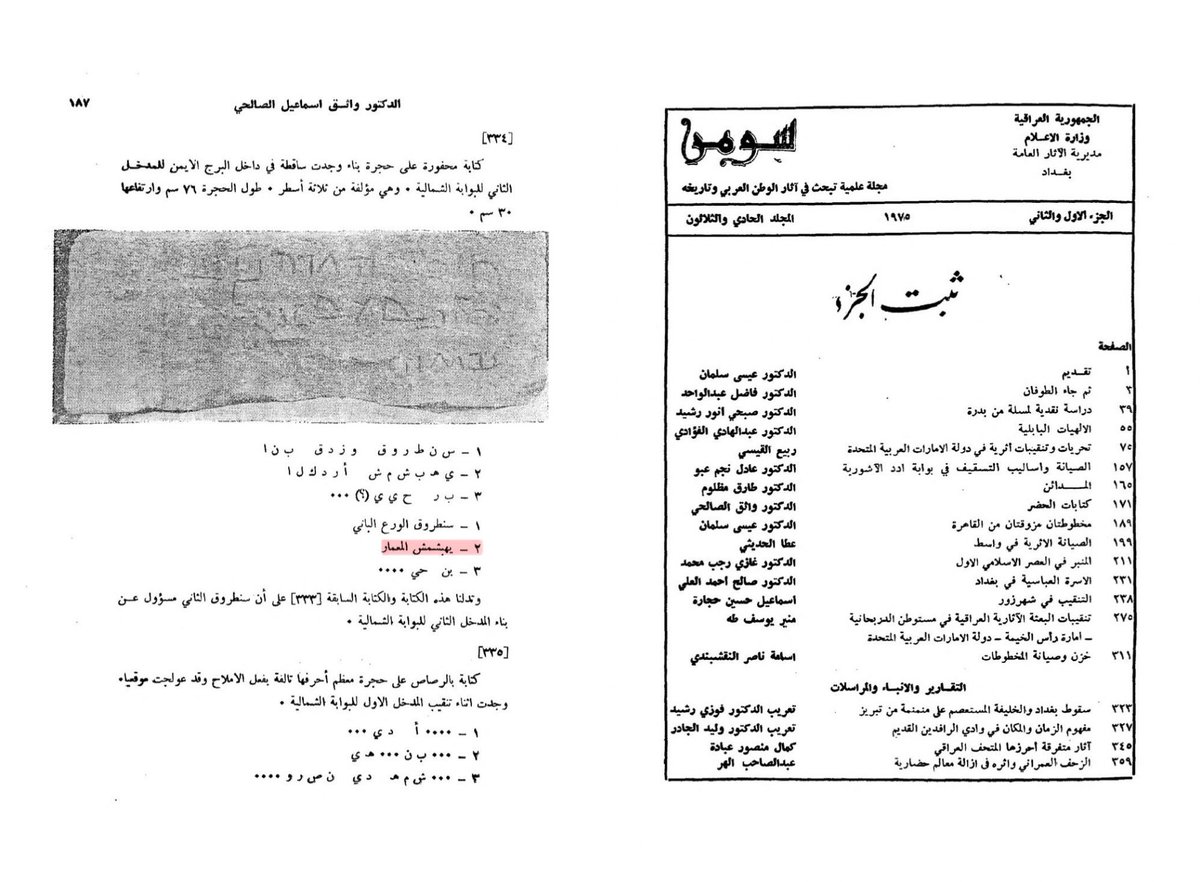 الجمهورية العراقية
وزارة الاعلام
مديرية الآثار العامة
بغداد
سومر
مجلة علمية تبحث في آثار الوطن العربي وتاريخه
الجزء الاول والثاني ١٩٧٥ المجلد الحادي والثلاثون
ثبت الجزء
الصفحة
أ تقديم الدكتور عيسى سلمان
٣ ثم جاء الطوفان الدكتور فاضل عبدالواحد
٣٩ دراسة نقدية لمسلة من بدرة الدكتور صبحي أنور رشيد
٥٥ الالهيات البابلية الدكتور عبدالهادي الفؤادي
٧٥ تحريات وتنقيبات أثرية في دولة الامارات العربية المتحدة ربيع القيسي
١٥٧ الصيانة واساليب التسقيف في بوابة ادد الآشورية الدكتور عادل نجم عبو
١٦٥ المــدائن الدكتور طارق مظلوم
١٧١ كتابات الحضر الدكتور واثق الصالحي
١٨٩ مخطوطتان مزوقتان من القاهرة الدكتور عيسى سلمان
١٩٩ الصيانة الاثرية في واسط عطا الحديثي
٢١١ المنبر في العصر الاسلامي الاول الدكتور غازي رجب محمد
٢٣١ الاسرة العباسية في بغداد الدكتور صالح أحمد العلي
٢٣٨ التنقيب في شهرزور اسماعيل حسين حجارة
٢٧٥ تنقيبات البعثة الآثارية العراقية في مستوطن الدربحانية منير يوسف طه
– امارة رأس الخيمة – دولة الامارات العربية المتحدة
٣١١ خزن وصيانة المخطوطات اسامة ناصر النقشبندي
التقارير والانباء والمراسلات
٣٢٣ سقوط بغداد والخليفة المستعصم على منمنمة من تبريز تعريب الدكتور فوزي رشيد
٣٢٧ مفهوم الزمان والمكان في وادي الرافدين القديم تعريب الدكتور وليد الجادر
٣٤٥ آثار متفرقة أحرزها المتحف العراقي كمال منصور عبادة
٣٥٩ الزحف العمراني واثره في ازالة معالم حضارية عبدالصاحب الهر
الدكتور واثق اسماعيل الصالحي ١٨٧
[٣٣٤]
كتابة محفورة على حجرة بناء وجدت ساقطة في داخل البرج الأيمن للمدخل
الثاني للبوابة الشمالية ٠ وهي مؤلفة من ثلاثة أسطر ٠ طول الحجرة ٧٦ سم وارتفاعها
٣٠ سم ٠
١ – س ن ط ر و ق و ز د ق ب ن ا
٢ – ي هـ ب ش م ش أ ر د ك ل ا
٣ – ب ر ح ي ي (؟) ٠٠٠
١ – سنطروق الورع الباني
٢ – يهبشمش المعمار
٣ – بن حي ٠٠٠٠
وتدلنا هذه الكتابة والكتابة السابقة [٣٣٣] على أن سنطروق الثاني مسؤول عن
بناء المدخل الثاني للبوابة الشمالية ٠
[٣٣٥]
كتابة بالرصاص على حجرة معظم أحرفها تالفة بفعل الاملاح وقد عولجت موقعياء
وجدت اثناء تنقيب المدخل الاول للبوابة الشمالية ٠
١ – ٠٠٠٠ أ د ي ٠٠٠
٢ – ٠٠٠ ب ن ٠٠٠ هـ ي
٣ – ٠٠٠ ش م هـ د ي ن ص ر و ٠٠٠٠